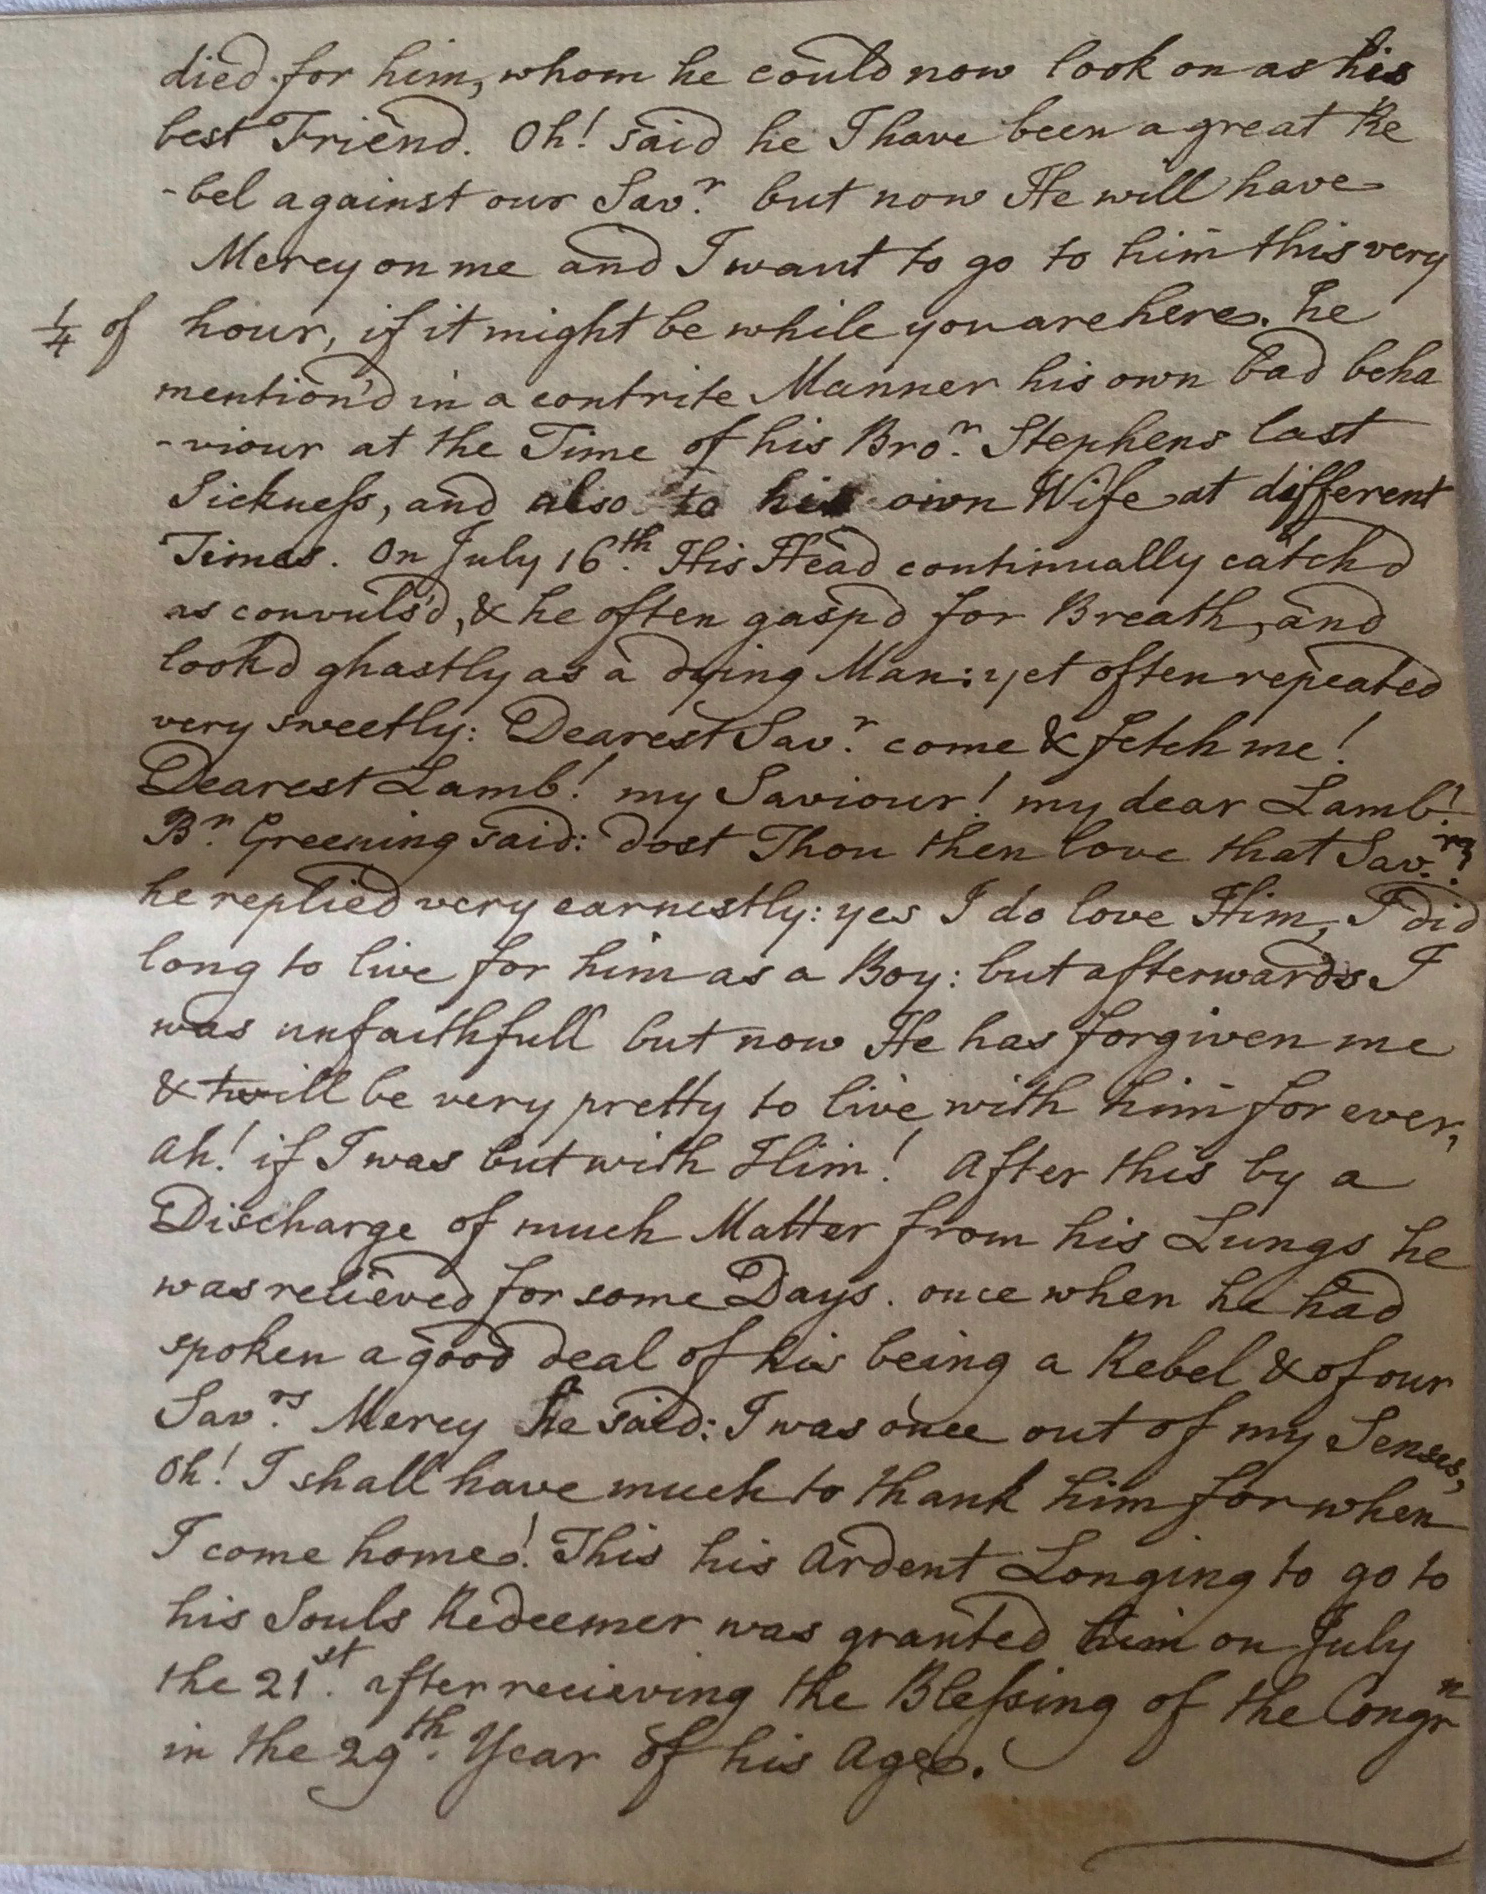 died for him, whom he could now look on as his
best Friend. Oh! said he I have been a great Re
-bel against our Sav.r but now He will have
Mercy on me and I want to go to him this very
1/4 of hour, if it might be while you are here. he
mention'd in a contrite Manner his own bad beha
-viour at the Time of his Bro.r Stephens last
Sickness, and also to his own Wife at different
Times. On July 16.th His Head continually catch'd
as convuls'd, & he often gasp'd for Breath, and
look'd ghastly as a dying Man: yet often repeated
very sweetly: Dearest Sav.r come & fetch me!
Dearest Lamb! my Saviour! my dear Lamb!
B.r Greening said: dost Thou then love that Sav.r?
he replied very earnestly: yes I do love Him, I did
long to live for him as a Boy: but afterwards I
was unfaithfull but now He has forgiven me
& twill be very pretty to live with him for ever,
Ah! if I was but with Him! After this by a
Discharge of much Matter from his Lungs he
was relieved for some Days. once when he had
spoken a good deal of his being a Rebel & of our
Sav.rs Mercy he said: I was once out of my Senses,
Oh! I shall have much to thank him for when
I come home! This his Ardent Longing to go to
his Souls Redeemer was granted him on July
the 21.st after recieving the Blessing of the Congn
in the 29.th Year of his Age.